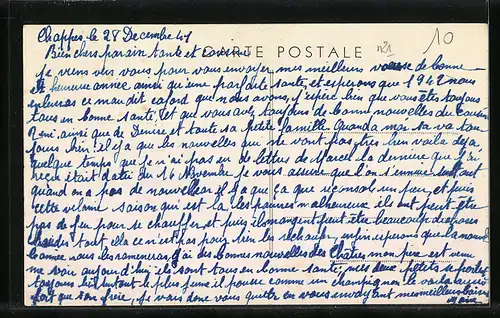 Chappes, le 28 Decembre 41
Bien chers parrain tante et cousine
CARTE POSTALE
10
Je viens vers vous pour vous envoyer mes meilleurs voeux de bonne
et heureuse année ainsi qu'une parfaite santé, et esperons que 1942 nous
enlevras ce maudit cafard que nous avons, j'espère bien que vous êtes toujours
tous en bonne santé, et que vous avez toujours de bonne nouvelles du cousin
Rémi, ainsi que de Denise et toute sa petite famille. Quand a moi sa va tou
jours bien, il y a que les nouvelles qui ne vont pas très bien voila déja
quelque temps que je n'ai pas eu de lettres de Marcel la dernière que j'ai
reçu était daté du 16 Novembre je vous assure que l'on s'ennuie surtout
quand on a pas de nouvelles il y a que ça que nous console un peu, et puis
cette vilaine saison qui est la les pauvres malheureux ils ont peut être
pas de feu pour se chauffer et puis ils mangent peut être beaucoup de choses
chaudes tout cela ce n'est pas pour bien les rechauffer, enfin esperons que la nouvel
année nous les ramenera. J'ai des bonnes nouvelles des Chatres mon père est venu
me voir aujourd'hui ils sont tous en bonne santé, mes deux petits se portent
toujours bien surtout le plus jeune il pousse comme un champignon le voila aussi
fort que son frère, je vais donc vous quitter en vous envoyant mes meilleurs baisers